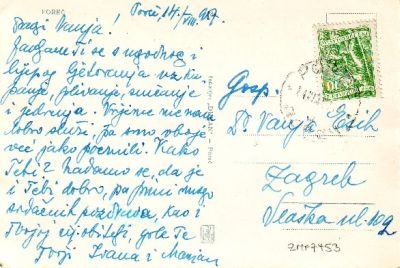 POREČ
Poreč 14./VIII. 957.
Dragi Vanja!
Javljamo ti se s ugodnog i
lijepog ljetovanja uz ku-
panje, plivanje, sunčanje
i jedrenja. Vrijeme nas
dobro služi, pa smo oboje
već jako pocrnili. Kako
Tebi? Nadamo se, da je
i Tebi dobro, pa primi mnogo
srdačnih pozdrava, kao i
Tvojoj obitelji, od
Tvoji Ivana i Marijan
Gosp.
Dr Vanja Esih
Zagreb
Vlaška ul.
ZMP9453